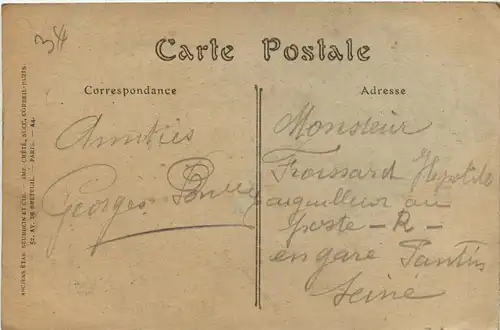 Carte Postale
Correspondance
Adresse
Amitiés
Georges
Monsieur
Froissard Hypolite
aiguilleur au
poste - R -
en gare Pantin
Seine
ANCIENS ÉTAB. NEURDEIN ET CIE. — IMP. CRÉTÉ, SUCC. CORBEIL-PARIS.
52, AV. DE BRETEUIL. — PARIS. — 44.